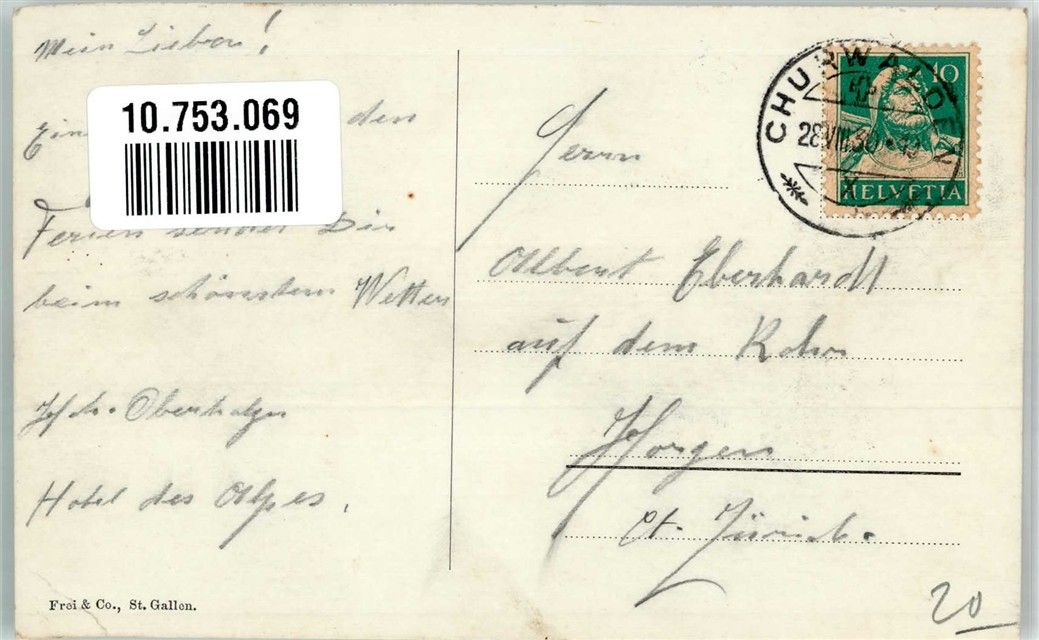 Mein Lieber!
10.753.069
den
Ferien sendet Dir
beim schönsten Wetter
Hch. Oberholzer
Hotel des Alpes.
Frei & Co., St. Gallen.
CHURWALDEN
28.VIII.30
10
HELVETIA
Herrn
Albert Eberhardt
auf dem
Horgen
Ct. Zürich.
20